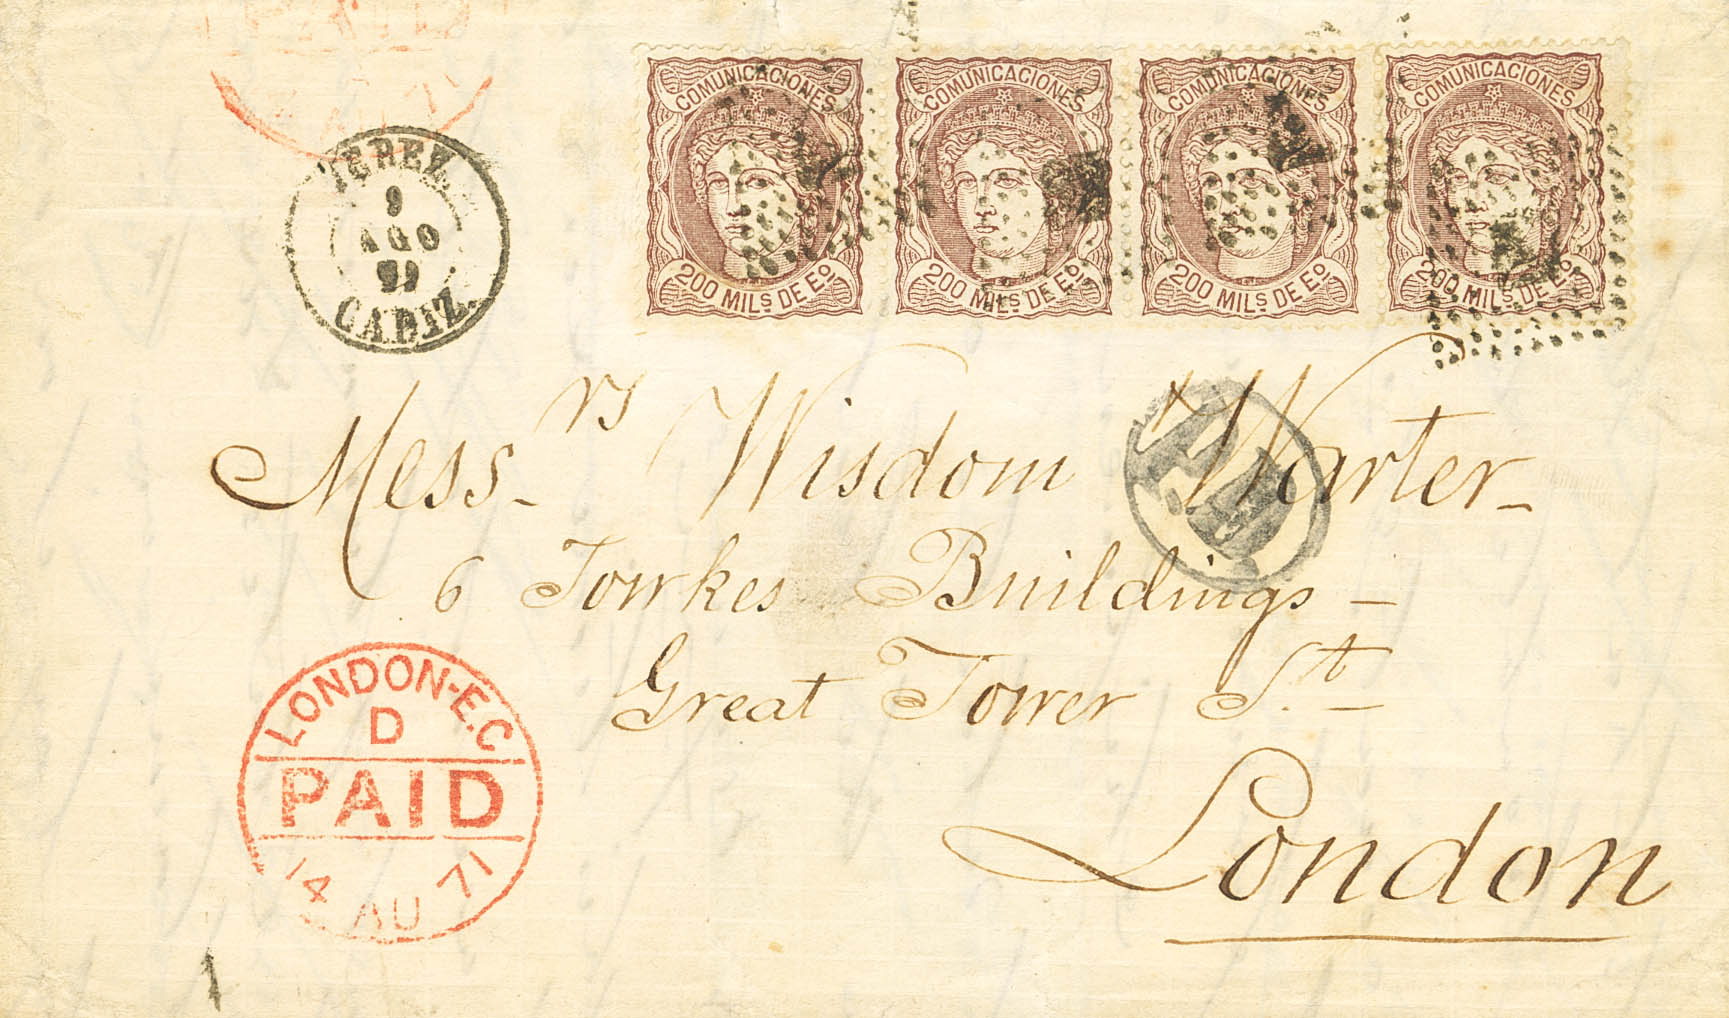 PAID
AU 71
JEREZ.
9
AGO
71
CADIZ.
COMUNICACIONES
200 MILS DE Eº
COMUNICACIONES
200 MILS DE Eº
COMUNICACIONES
200 MILS DE Eº
COMUNICACIONES
200 MILS DE Eº
Messrs Wisdom Warter
P.D.
6 Fowkes Buildings
Great Tower St.
London
LONDON-E.C
D
PAID
14 AU 71